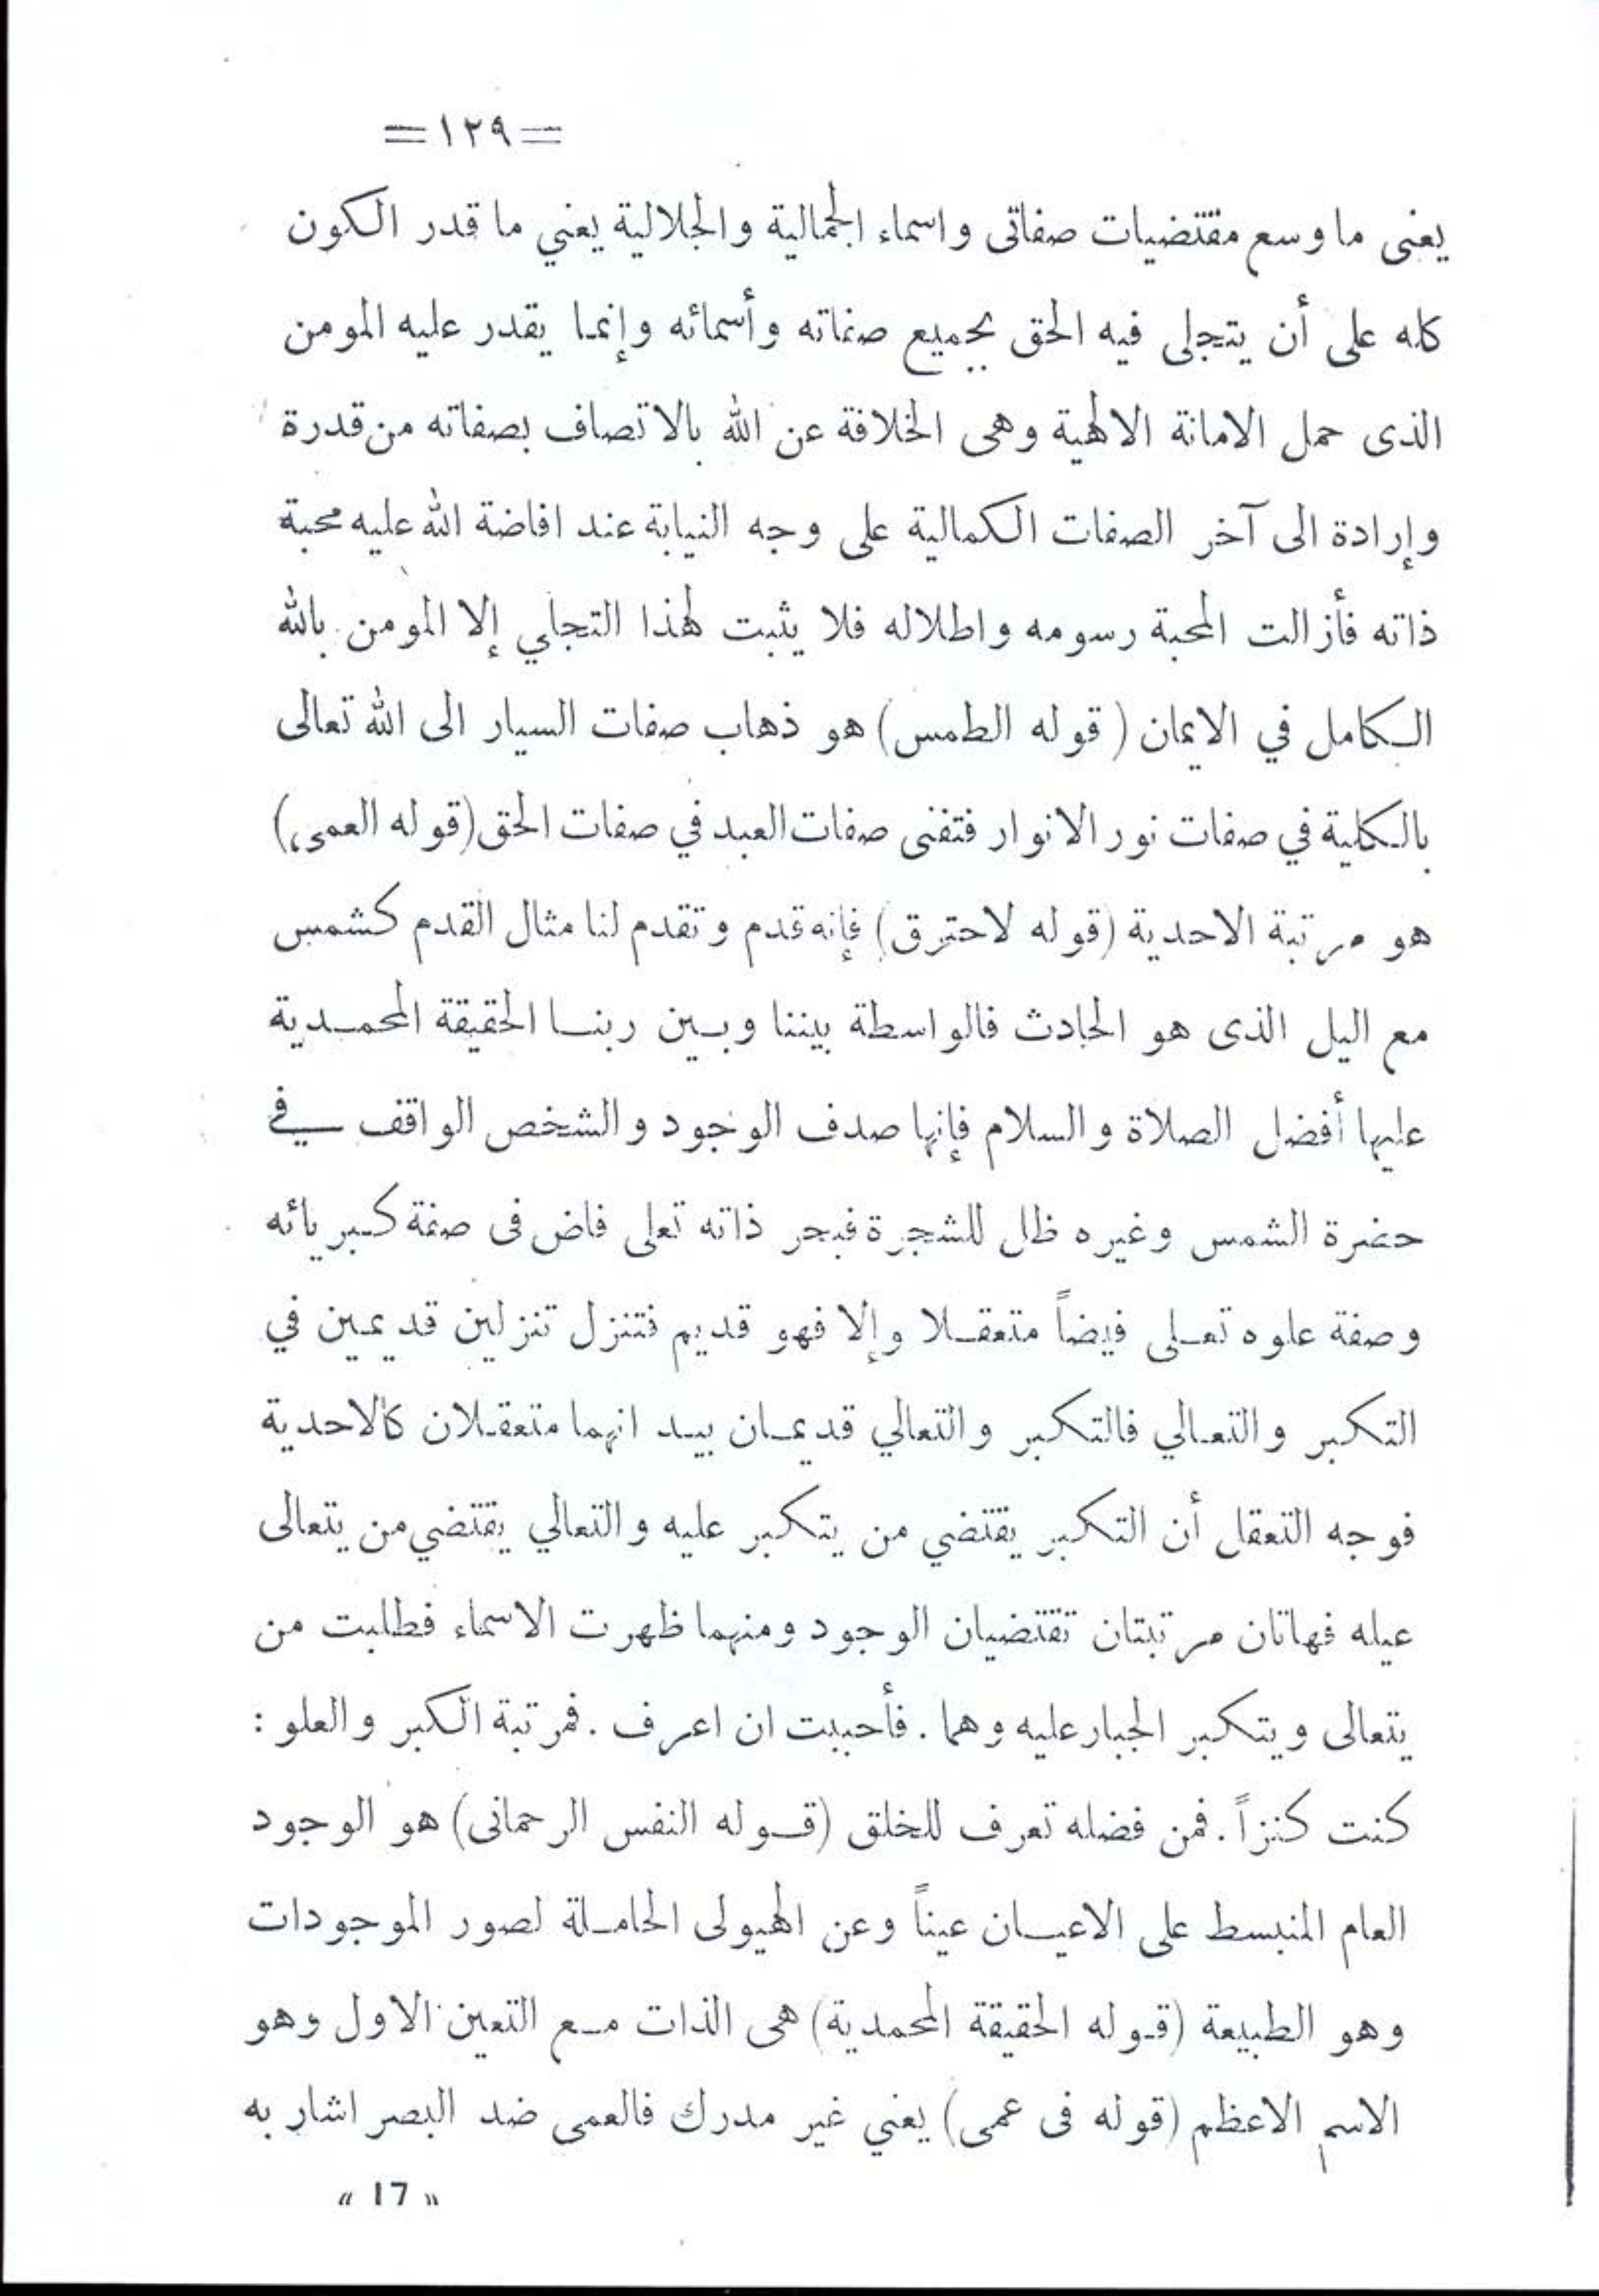 =١٢٩=
يعنى ما وسع مقتضيات صفاتى واسماء الجمالية والجلالية يعني ما قدر الكون
كله على أن يتجلى فيه الحق بجميع صفاته وأسمائه وإنما يقدر عليه المومن
الذى حمل الامانة الالهية وهى الخلافة عن الله بالاتصاف بصفاته من قدرة
وإرادة الى آخر الصفات الكمالية على وجه النيابة عند افاضة الله عليه محبة
ذاته فأزالت المحبة رسومه واطلاله فلا يثبت لهذا التجلي إلا المومن بالله
الكامل في الايمان (قوله الطمس) هو ذهاب صفات السيار الى الله تعالى
بالكلية في صفات نور الانوار فتفنى صفات العبد في صفات الحق (قوله العمى،)
هو مرتبة الاحدية (قوله لاحترق) فإنه قدم وتقدم لنا مثال القدم كشمس
مع اليل الذى هو الحادث فالواسطة بيننا وبين ربنا الحقيقة المحمدية
عليها أفضل الصلاة والسلام فإنها صدف الوجود والشخص الواقف في
حضرة الشمس وغيره ظل للشجرة فبحر ذاته تعلى فاض فى صفة كبريائه
وصفة علوه تعلى فيضاً متعقلا وإلا فهو قديم فتنزل تنزلين قديمين في
التكبر والتعالي فالتكبر والتعالي قديمان بيد انهما متعقلان كالاحدية
فوجه التعقل أن التكبر يقتضي من يتكبر عليه والتعالي يقتضي من يتعالى
عيله فهاتان مرتبتان تقتضيان الوجود ومنهما ظهرت الاسماء فطلبت من
يتعالى ويتكبر الجبار عليه وهما . فأحببت ان اعرف . فمرتبة الكبر والعلو :
كنت كنزاً . فمن فضله تعرف للخلق (قوله النفس الرحمانى) هو الوجود
العام المنبسط على الاعيان عيناً وعن الهيولى الحاملة لصور الموجودات
وهو الطبيعة (قوله الحقيقة المحمدية) هى الذات مع التعين الاول وهو
الاسم الاعظم (قوله فى عمى) يعني غير مدرك فالعمى ضد البصر اشار به
« 17 »